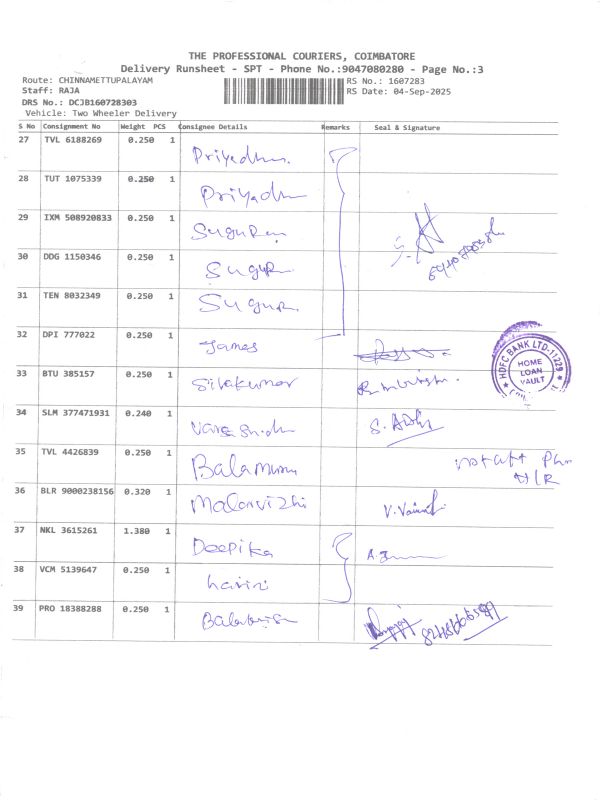 THE PROFESSIONAL COURIERS, COIMBATORE
Delivery Runsheet - SPT - Phone No.:9047080280 - Page No.:3
Route: CHINNAMETTUPALAYAM RS No.: 1607283
Staff: RAJA RS Date: 04-Sep-2025
DRS No.: DCJB160728303
Vehicle: Two Wheeler Delivery
S No Consignment No Weight PCS Consignee Details Remarks Seal & Signature
27 TVL 6188269 0.250 1
28 TUT 1075339 0.250 1
29 IXM 508920833 0.250 1
30 DDG 1150346 0.250 1 Sugur
31 TEN 8032349 0.250 1 Sugur
32 DPI 777022 0.250 1 James
HDFC BANK LTD-11229
HOME
LOAN
VAULT
33 BTU 385157 0.250 1 Sivakumar
34 SLM 377471931 0.240 1
35 TVL 4426839 0.250 1
36 BLR 9000238156 0.320 1 Malarvizhi
37 NKL 3615261 1.380 1 Deepika
38 VCM 5139647 0.250 1 harini
39 PRO 18388288 0.250 1